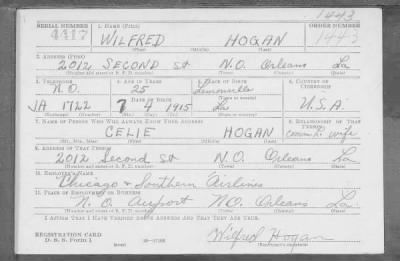 1443
SERIAL NUMBER 1. NAME (Print) ORDER NUMBER
4417 WILFRED HOGAN 1443
(First) (Middle) (Last)
2. ADDRESS (Print)
2012 SECOND St N.O. Orleans La
(Number and street or R. F. D. number) (Town) (County) (State)
3. TELEPHONE 4. AGE IN YEARS 5. PLACE OF BIRTH 6. COUNTRY OF CITIZENSHIP
N.O. 25
DATE OF BIRTH (Town or county)
JA 1722 7 7 1915 La U.S.A.
(Exchange) (Number) (Mo.) (Day) (Yr.) (State or country)
7. NAME OF PERSON WHO WILL ALWAYS KNOW YOUR ADDRESS 8. RELATIONSHIP OF THAT PERSON
CELIE HOGAN wife
(Mr., Mrs., Miss) (First) (Middle) (Last)
9. ADDRESS OF THAT PERSON
2012 Second St N.O. Orleans La
(Number and street or R. F. D. number) (Town) (County) (State)
10. EMPLOYER'S NAME
Chicago & Southern Airlines
11. PLACE OF EMPLOYMENT OR BUSINESS
N. O. Airport N.O. Orleans La.
(Number and street or R. F. D. number) (Town) (County) (State)
I AFFIRM THAT I HAVE VERIFIED ABOVE ANSWERS AND THAT THEY ARE TRUE.
REGISTRATION CARD
D. S. S. Form 1 Wilfred Hogan
(Registrant's signature)